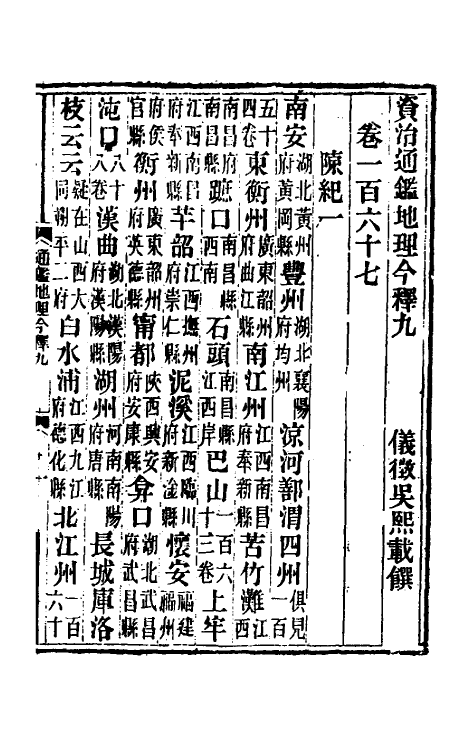 資治通鑑地理今釋九 儀徵吳熙載饌
卷一百六十七
陳紀一
南安湖北黃州府黃岡縣豐州湖北襄陽府均州涼河鄯渭四州俱見一百
五十四卷東衡州廣東韶州府曲江縣南江州江西南昌府奉新縣苦竹灘江西
南昌府南昌縣蹠口南昌縣西南石頭南昌縣江西岸巴山一百六十三卷上牢
江西南昌府奉新縣芊韶江西撫州府崇仁縣泥溪江西臨川府新淦縣懷安福建福州
府侯官縣衡州廣東韶州府英德縣甯都陝西興安府安康縣弇口湖北武昌府武昌縣
沌口八十八卷漢曲湖北漢陽府漢陽縣湖州河南南陽府唐縣長城庫洛
枝云云疑在山西大同朔平二府白水浦江西九江府德化縣北江州一百六十
通鑑地理今釋九